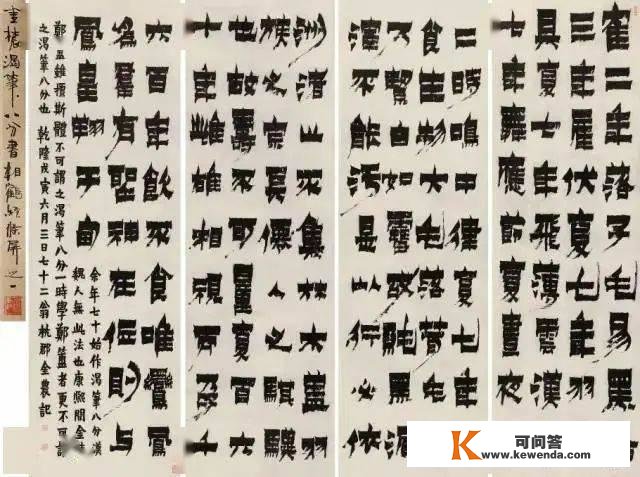 二年落子毛易黑
三年產伏復七年羽
具復七年飛薄雲漢
七年舞應節復晝夜
二時鳴中律復七年
食
大毛落
生
黑
泥水
能污是以行必依
洲渚止不集林木蓋羽
族之宗僊人之騏驥
也故壽不可量復百六
十年雌雄相視而孕千
六百年飲不食唯鳳
為羣有聖神在位則与
鳳皇翔于甸
余年七十始作渴筆八分漢
魏人無此法也康熙間金
鄭簠雖擅斯體不可謂之渴筆八分一時學鄭簠者更不可謂
之渴筆八分也 乾隆戊寅六月三日七十二翁杭郡金農記
渴筆八分書相鶴經條屏之一
K 可问答
www.kewenda.com